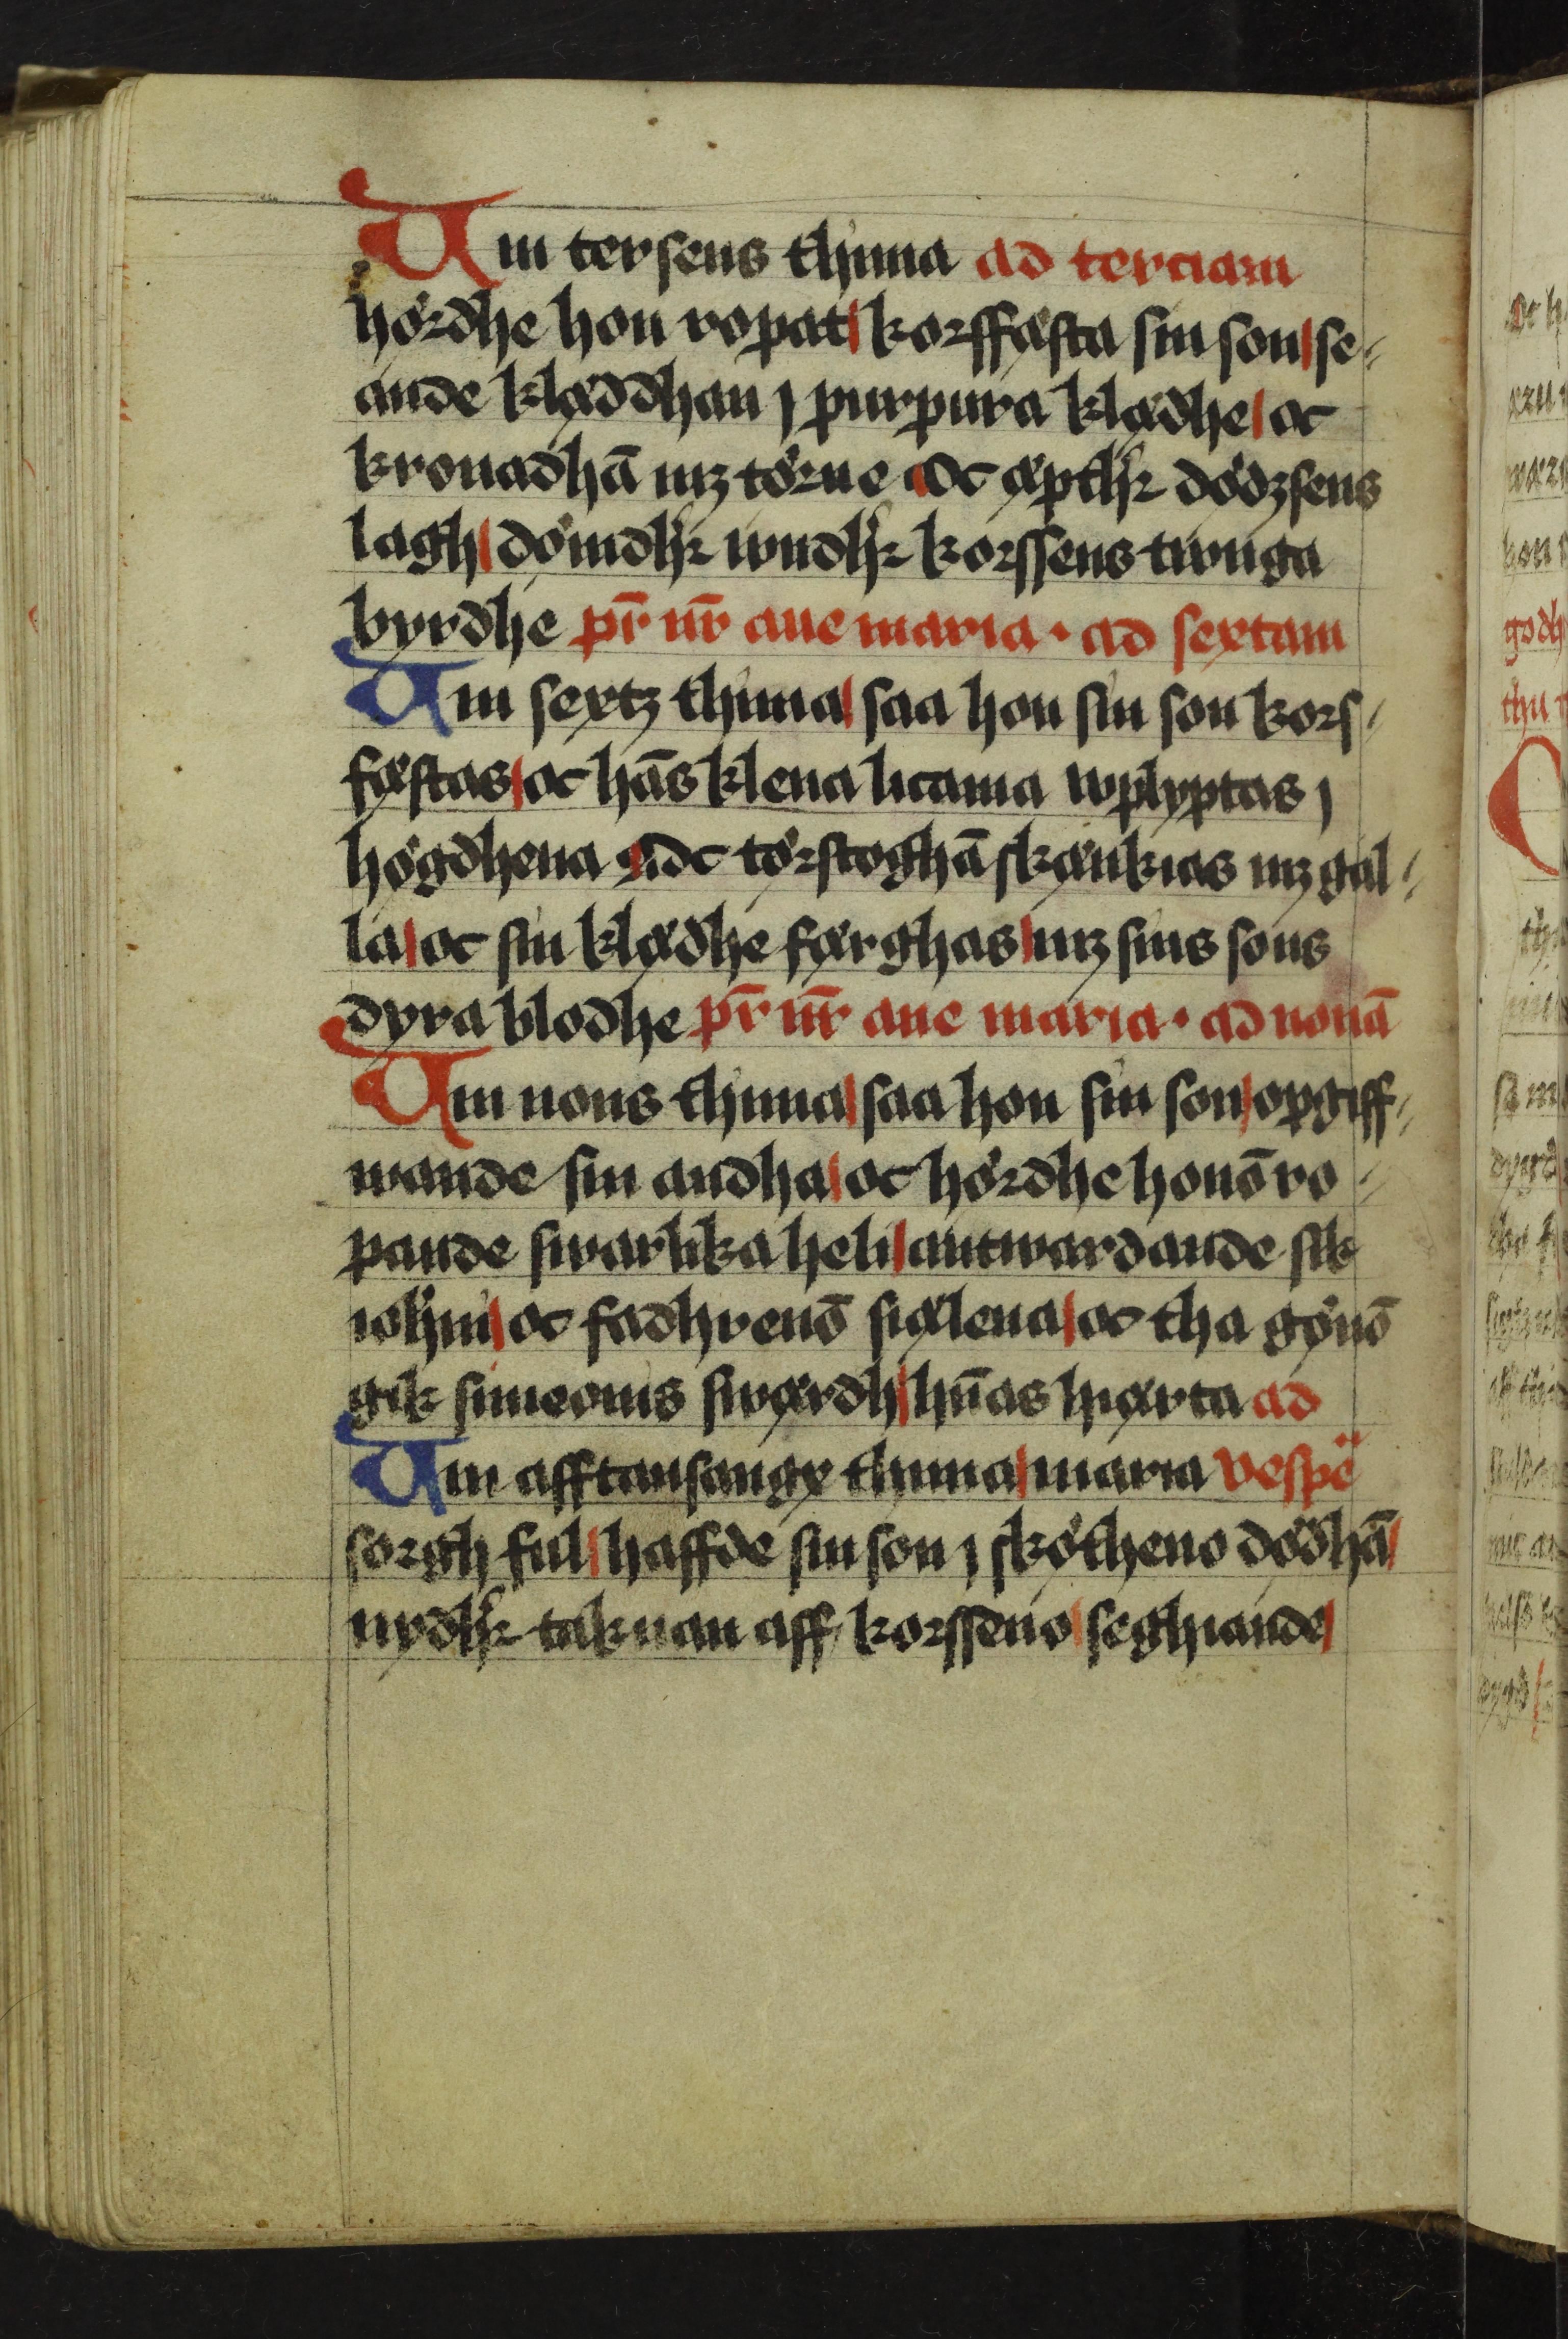 Um tersens thima ad terciam
hördhe hon ropat korffæsta sin son se-
ande klæddhan j purpura klædhe oc
kronadhā mz törne Oc æpthr̄ dödzsens
lagh dömdhr̄ wndhr̄ korssens twnga
byrdhe pr̄ nr̄ aue maria · ad sextam
Um sextz thima saa hon sin son kors-
fæstas oc hās klena licama wplyptas j
högdhena Oc törstoghā skænkias mz gal-
la oc sin klædhe færghas mz sins sons
dyra blodhe pr̄ nr̄ aue maria · ad nonā
Um nons thima saa hon sin son opgiff-
wande sin andha oc hördhe honō ro-
pande swarlika heli antwardande sik
iohīni oc fadhrenō siælena oc tha gönō
gik simeonis swærdh hn̄as hiærta ad
Um afftansangx thima maria vespē
sorgh ful haffde sin son j skötheno dödhā
nydhr̄ taknan aff korsseno seghiande